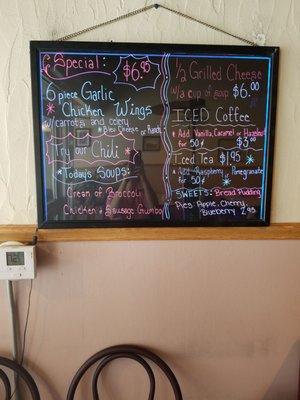 Special:
$6.95
6 piece Garlic
Chicken Wings
w/carrots and celery
* Bleu Cheese or Ranch
Try our Chili
*Today's Soups:
Cream of Broccoli
Chicken & Sausage Gumbo
1/2 Grilled Cheese
w/a cup of soup $6.00
ICED Coffee
* Add Vanilla, Caramel or Hazelnut
for 50¢ $3.00
Iced Tea $1.95
* Add Raspberry or Pomegranate
for 50¢
SWEETS: Bread Pudding
Pies: Apple, Cherry,
Blueberry 2.95